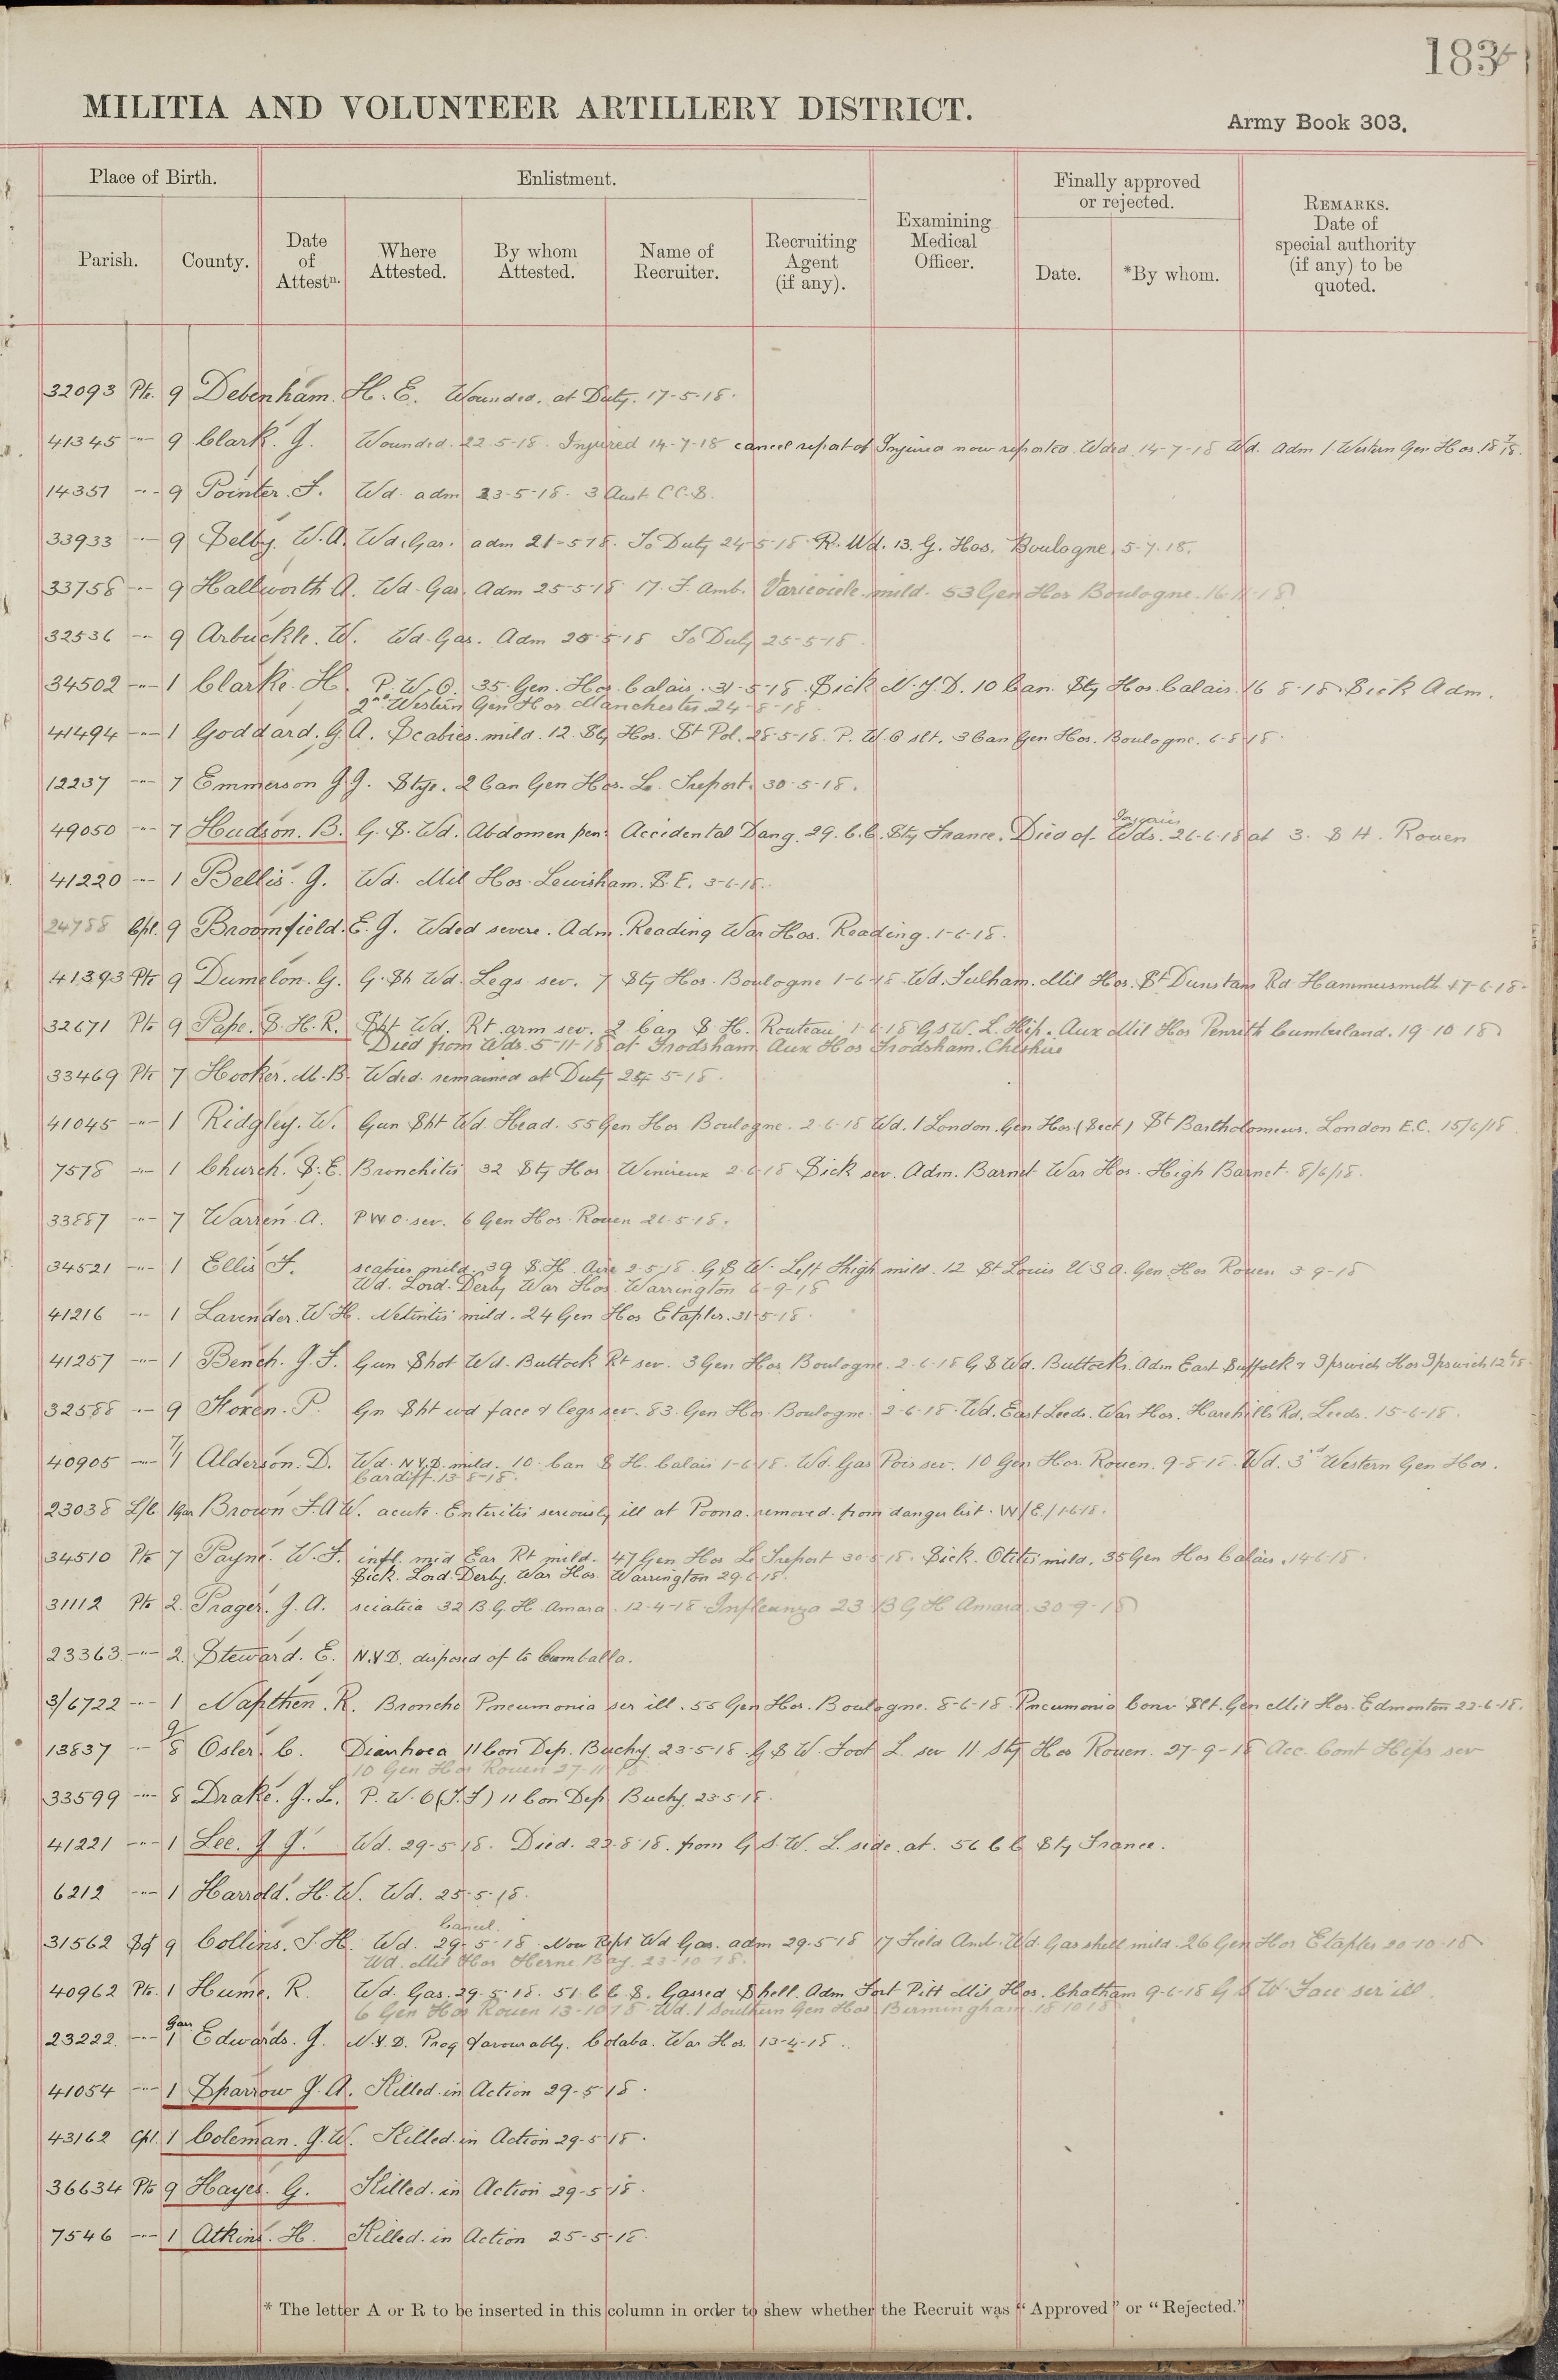 183
MILITIA AND VOLUNTEER ARTILLERY DISTRICT.
Army Book 303.
Place of Birth.
Enlistment.
Finally approved or rejected.
Parish.
County.
Date of Attestn.
Where Attested.
By whom Attested.
Name of Recruiter.
Recruiting Agent (if any).
Examining Medical Officer.
Date.
*By whom.
REMARKS. Date of special authority (if any) to be quoted.
32093 Pte. 9 Debenham. H. E. Wounded. at Duty. 17-5-18.
41345 -"- 9 Clark. G. Wounded. 22-5-18. Injured 14-7-18 cancel report of Injured now reported Wded 14-7-18 Wd. Adm 1 Western Gen Hos. 18/7/18.
14351 -"- 9 Pointer. F. Wd. adm 23-5-18. 3 Aust C.C.S.
33933 -"- 9 Selby. W.A. Wd. Gas. adm 21-5-18. To Duty 24-5-18 R. Wd. 13. G. Hos. Boulogne 5-7-18.
33758 -"- 9 Hallworth A. Wd. Gas. Adm 25-5-18 17. F. Amb. Varicocele mild. 53 Gen Hos Boulogne. 16-11-18
32536 -"- 9 Arbuckle. W. Wd. Gas. Adm 25-5-18 To Duty 25-5-18.
34502 -"- 1 Clarke. H. P.U.O. 35. Gen. Hos Calais. 31-5-18. Sick N.Y.D. 10 Can. Sty Hos. Calais. 16 8-18 Sick Adm.
2nd Western Gen Hos. Manchester 24-8-18
41494 -"- 1 Goddard. G.A. Scabies. mild. 12. Sty Hos. St Pol. 28-5-18. P.U.O slt. 3 Can Gen Hos. Boulogne. 6-8-18.
12237 -"- 7 Emmerson G.G. Stye. 2 Can Gen Hos. Le Treport. 30-5-18.
49050 -"- 7 Hudson. B. G.S. Wd. Abdomen pen: Accidental Dang. 29. C.C. Sty France. Died of Wds. 26-6-18 at 3. S H. Rouen
41220 -"- 1 Bellis. G. Wd. Mil Hos. Lewisham. S.E. 3-6-18.
24788 Cpl. 9 Broomfield. E.G. Wded severe. Adm. Reading War Hos. Reading. 1-6-18.
41393 Pte 9 Dumelon. G. G. Sh Wd. Legs sev. 7 Sty Hos. Boulogne 1-6-18. Wd. Fulham. Mil Hos. St Dunstans Rd Hammersmith 17-6-18.
32671 Pte 9 Pape. S.H.R. Sht Wd. Rt arm sev. 2 Can S. H. 1-6-18 G.S.W. L. Hip. Aux Mil Hos Penrith Cumberland. 19-10 18
Died from Wds. 5-11-18 at Frodsham Aux Hos Frodsham. Cheshire
33469 Pte 7 Hooker. M.B. Wded. remained at Duty 5-18.
41045 -"- 1 Ridgley. W. Gun Sht Wd. Head. 55 Gen Hos Boulogne. 2-6-18 Wd. 1 London. Gen Hos (Sect) St Bartholomews. London E.C. 15/6/18.
7578 -"- 1 Church. S.E. Bronchitis 32 Sty Hos Wimereux 2-6-18 Sick sev. Adm. Barnet War Hos. High Barnet 8/6/18.
33887 -"- 7 Warren. A. P U O. sev. 6 Gen Hos Rouen 26-5-18.
34521 -"- 1 Ellis F. scabies mild. 39 S.H. Aire 2-5-18. G.S W. Left Thigh mild. 12 St Louis U S A. Gen Hos Rouen 3 9-18
Wd. Lord Derby War Hos Warrington 6-9-18
41216 -"- 1 Lavender. W.H. mild. 24 Gen Hos Etaples. 31-5-18.
41257 -"- 1 Bench. G.F. Gun Shot Wd. Buttock Rt sev. 3 Gen Hos Boulogne. 2-6-18 G S Wd. Buttocks. Adm East Suffolk & Ipswich Hos Ipswich
32588 -"- 9 P. Gn Sht wd face & legs sev. 83. Gen Hos Boulogne 2-6-18. Wd. East Leeds. War Hos. Harehills Rd, Leeds. 15-6-18.
40905 -"- 7/1 Alderson. D. Wd. N.Y.D. mild. 10 Can S H. Calais 1-6-18. Wd. Gas Pois sev. 10 Gen Hos. Rouen. 9-8-18. Wd. 3rd Western Gen Hos.
Cardiff. 13-8-18.
23038 L/C 1Gar Brown F.A.W. acute Enteritis seriously ill at Poona. removed from danger list. W/E/1-6-18.
34510 Pte 7 Payne. W.F. infl. mid Ear Rt mild. 47 Gen Hos Le Treport 30-5-18. Sick. Otitis mild. 35 Gen Hos Calais. 14-6-18.
Sick. Lord Derby. War Hos. Warrington 29-6-18.
31112 Pte 2. Prager. J.A. sciatica 32 B.G.H. Amara. 12-4-18 Influenza 23 B G H Amara. 30-9-18
23363 -"- 2. Steward. E. N.Y.D. disposed of to Cumballa.
3/6722 -"- 1 Napthen. R. Broncho Pneumonia ser ill. 55 Gen Hos. Boulogne. 8-6-18. Pneumonia Conv Slt. Gen Mil Hos. Edmonton 22-6-18.
13837 -"- 9/8 Osler. C. Diarrhoea 11 Con Dep. Buchy. 23-5-18 G S W. Foot L. sev 11 Sty Hos Rouen. 27-9-18 Acc. Cont Hips sev
10 Gen Hos Rouen 27-11-18
33599 -"- 8 Drake. G.L. P.U.O (T.F) 11 Con Dep Buchy. 23-5-18.
41221 -"- 1 Lee. G G. Wd. 29-5-18. Died. 22-8-18. from G.S.W. L. side. at. 56 C C Sty France.
6212 -"- 1 Harrold. H.W. Wd. 25-5-18.
Cancel.
31562 Sgt 9 Collins. S.H. Wd. 29-5-18. Now Rept Wd Gas. adm 29-5-18 17 Field Amb. Wd. Gas shell mild. 26 Gen Hos Etaples 20-10-18
Wd. Mil Hos Herne Bay. 23-10-18.
40962 Pte. 1 Hume. R. Wd. Gas. 29-5-18. 51 C C S. Gassed Shell. Adm Fort Pitt Mil Hos. Chatham 9-6-18 G S W. Face ser ill.
6 Gen Hos Rouen 13-10-18 Wd. 1 Southern Gen Hos Birmingham 18 10 18
23222. -"- Gar 1 Edwards. G. N.Y.D. Prog favourably. Colaba. War Hos. 13-4-18.
41054 -"- 1 Sparrow G.A. Killed in Action 29-5-18.
43162 Cpl. 1 Coleman. G.W. Killed in Action 29-5-18.
36634 Pte 9 Hayes. G. Killed in Action 29-5-18.
7546 -"- 1 Atkins. H. Killed in Action 25-5-18.
* The letter A or R to be inserted in this column in order to shew whether the Recruit was "Approved" or "Rejected."